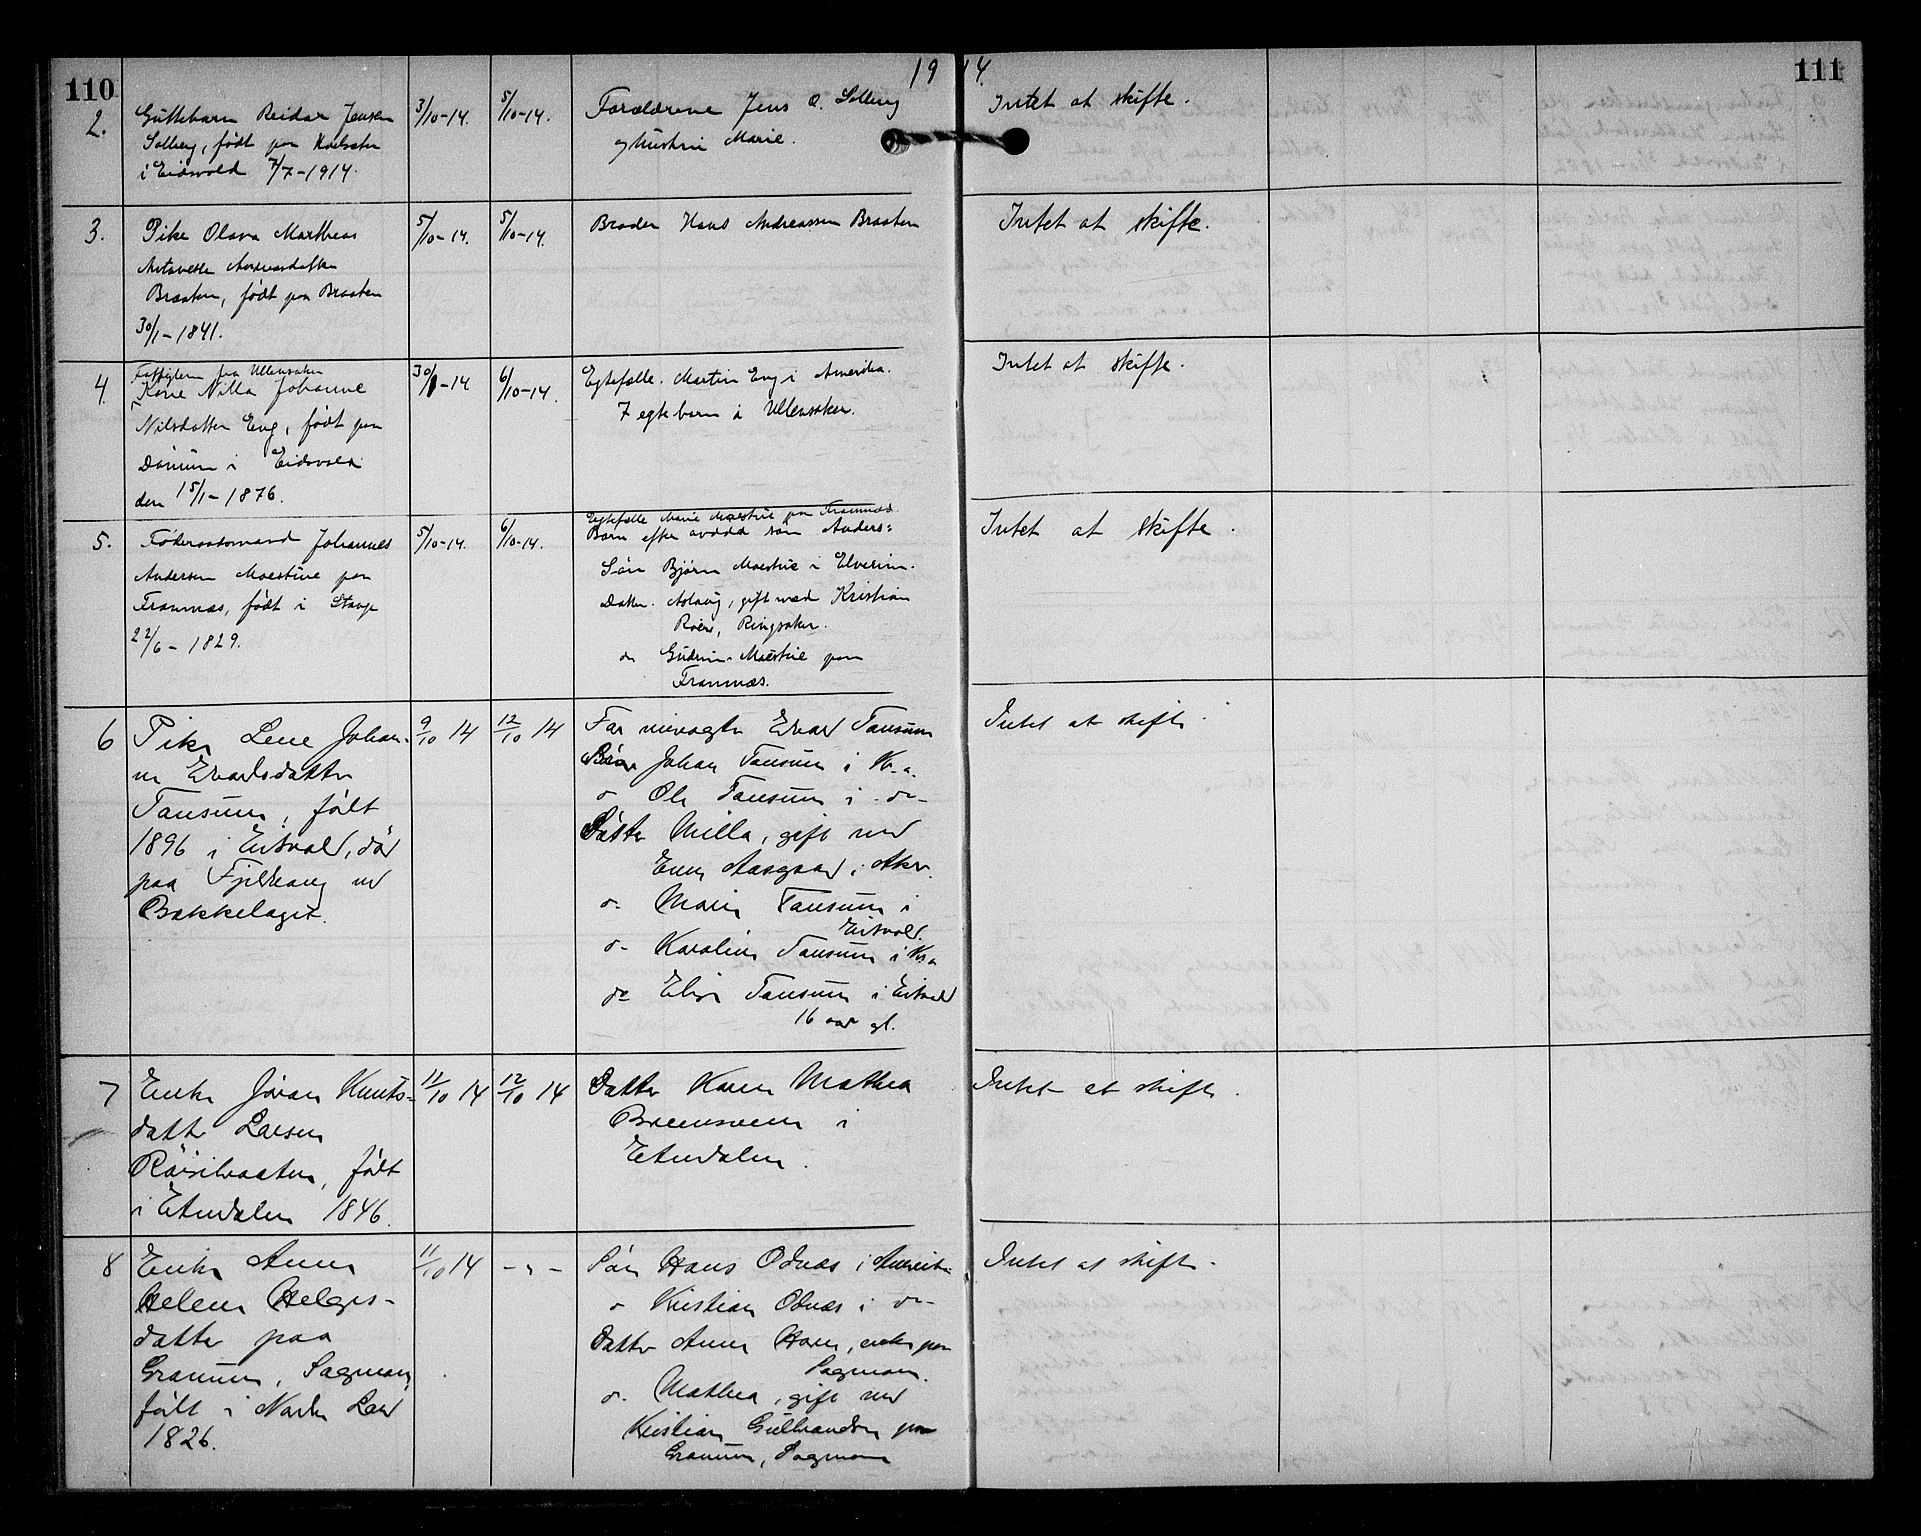 110
19 14.
111
2.
Guttebarn Reidar Jensen
Solberg, født paa
i Eidsvold 7/7-1914.
3/10-14.
5/10-14.
Forældrene Jens O. Solberg
og hustru Marie.
Intet at skifte.
3.
Pike Olava Marthea
Antonette Andreasdatter
Braaten, født paa Braaten
30/1-1841.
5/10-14.
5/10-14.
Broder Hans Andreassen Braaten
Intet at skifte.
4.
Fattiglem fra Ullensaker
Kone Nilla Johanne
Nilsdatter Eng, født paa
i Eidsvold
den 15/1-1876.
-14
6/10-14.
Egtefælle. Martin Eng i Amerika.
7 egtebarn i Ullensaker.
Intet at skifte.
5.
Føderaadsmand Johannes
Andersen Moestue paa
Framnæs, født i Stange
22/6-1829.
5/10-14.
6/10-14.
Egtefælle Marie Moestue paa Framnæs
Barn efter avdød søn Anders:
Søn Bjørn Moestue i Elverum.
Datter. Aslaug, gift med Kristian
Roen, Ringsaker.
do Gudrun Moestue paa
Framnæs.
Intet at skifte.
6
Pike Lene Johan-
ne Edvardsdatter
Tansum, født
1896 i Eidsvold, død
paa Fjeldhaug ved
Bækkelaget.
9/10 14
12/10 14
Far Edvard Tansum
Bror Johan Tansum i Kr.a.
do Ole Tansum i do
Søster Milla, gift med
Even Aasgaard i Aker.
do Marie Tansum i
Eidsvold.
do Karoline Tansum i Kr.a
do Elise Tansum i Eidsvold
16 aar gl.
Intet at skifte.
7
Enke Jøran Knuts-
datter Larsen
født
i Etnedalen 1846.
11/10 14
12/10 14
Datter Karen Mathea
i
Etnedalen.
Intet at skifte.
8
Enke Anne
Helene Helges-
datter paa
Granum, Sagmoen,
født i Nordre Land
1826.
11/10 14
- " -
Søn Hans Odnæs i Amerika
do Kristian Odnæs i do
Datter Anne Horn, enke paa
Sagmoen.
do Mathea, gift med
Kristian Gulbrandsen paa
Granum, Sagmoen
Intet at skifte.